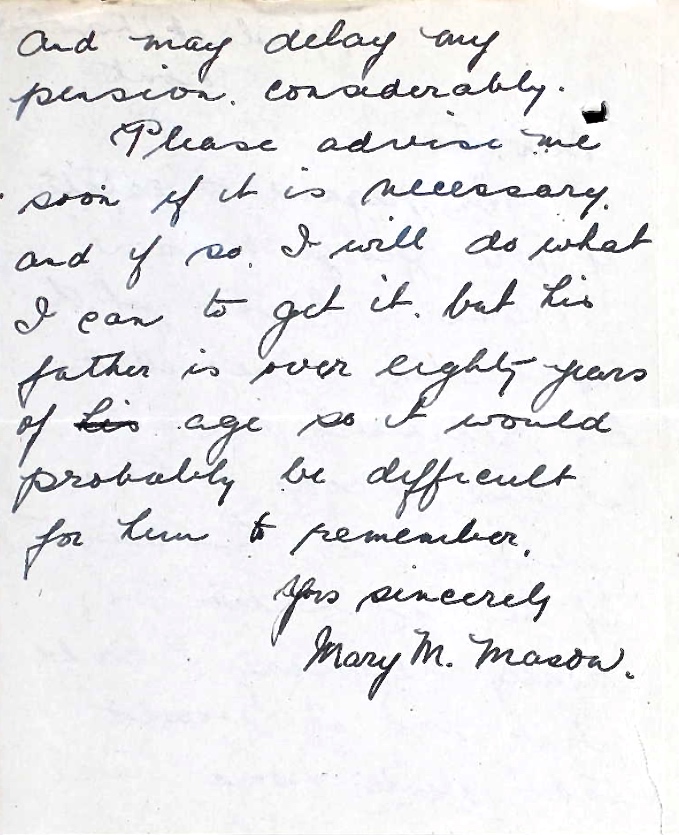 and may delay my
pension. considerably.
Please advise me
soon if it is necessary.
and if so. I will do what
I can to get it. but his
father is over eighty years
of his age so it would
probably be difficult
for him to remember.
Yrs sincerely
Mary M. Mason.